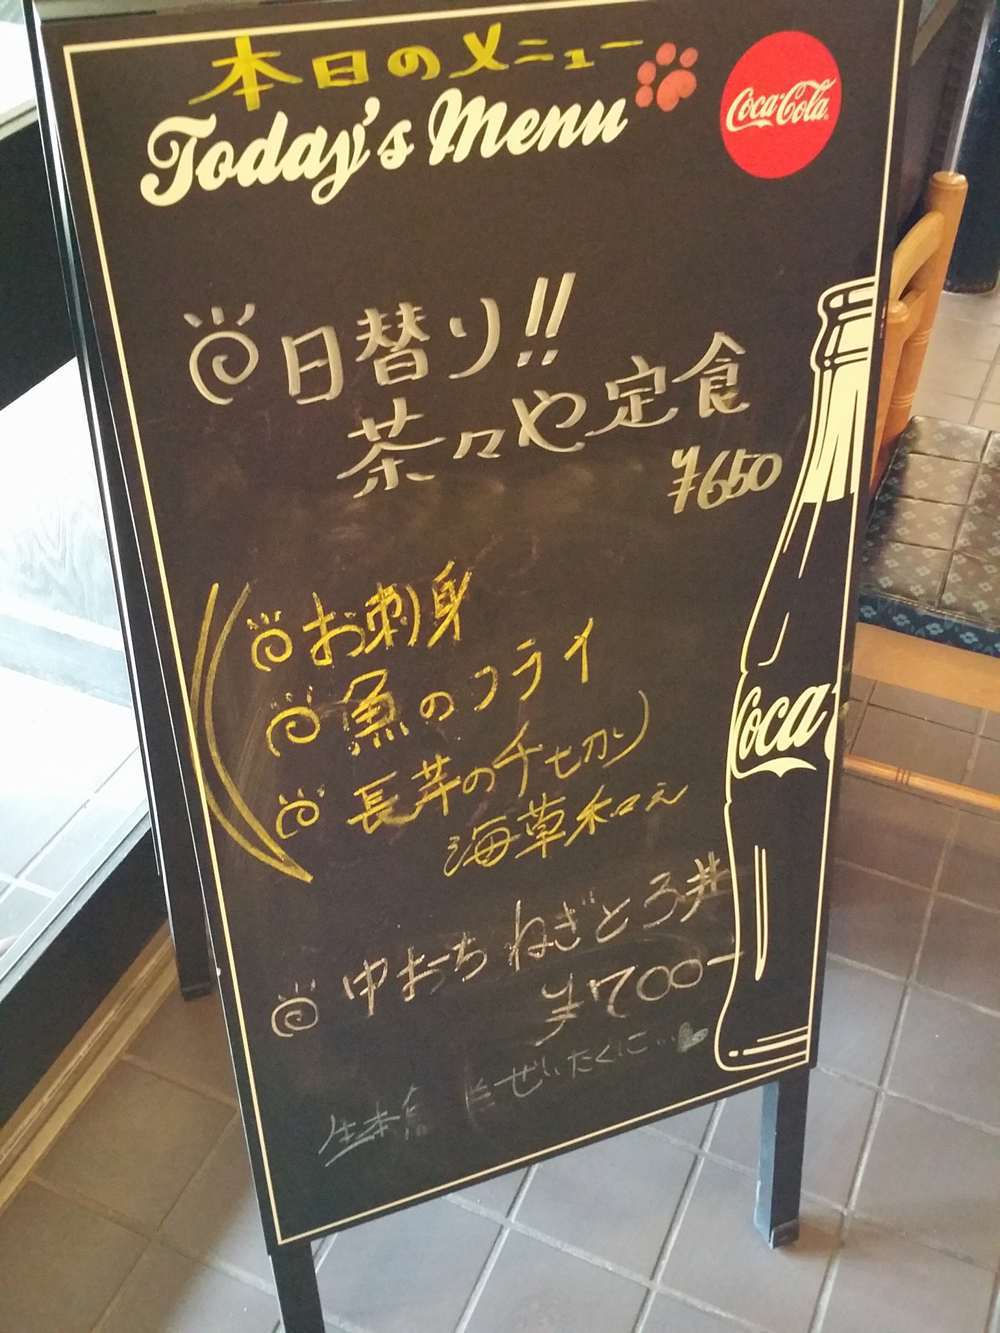 本日のメニュー
Today's Menu
Coca-Cola
日替り!!
茶々や定食
¥650
お刺身
魚のフライ
長芋の千切り
海草和え
中おち ねぎとろ丼
¥700-
生本 ぜいたくに…
Coca